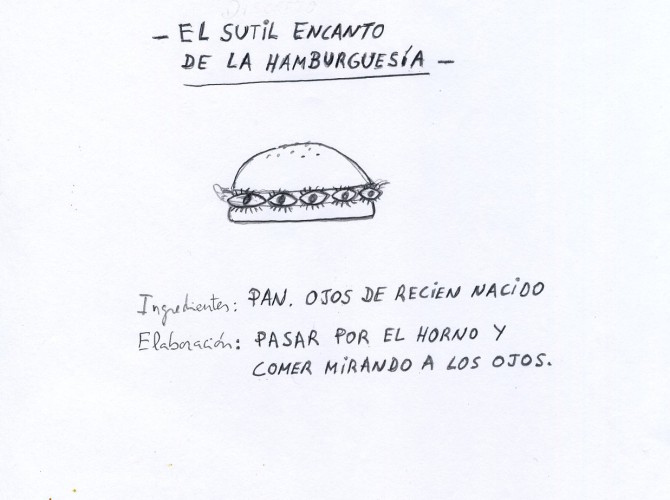 - EL SUTIL ENCANTO
DE LA HAMBURGUESÍA -
Ingredientes: PAN. OJOS DE RECIEN NACIDO
Elaboración: PASAR POR EL HORNO Y
COMER MIRANDO A LOS OJOS.